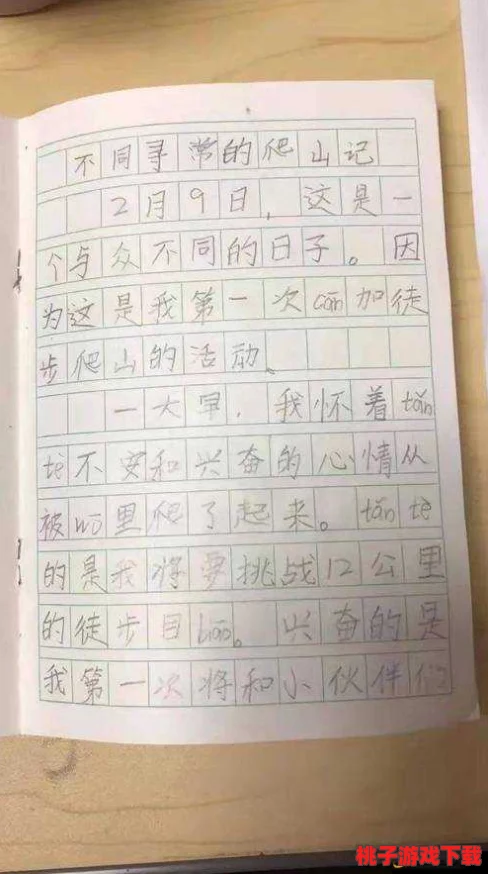 不同寻常的爬山记
2月9日，这是一
个与众不同的日子。因
为这是我第一次cān加徒
步爬山的活动、
一大早，我怀着tǎn
tè不安和兴奋的心情从
被wō里爬了起来。tǎn tè
的是我将要挑战12公里
的徒步目biāo。兴奋的是
我第一次将和小伙伴们
桃子游戏下载